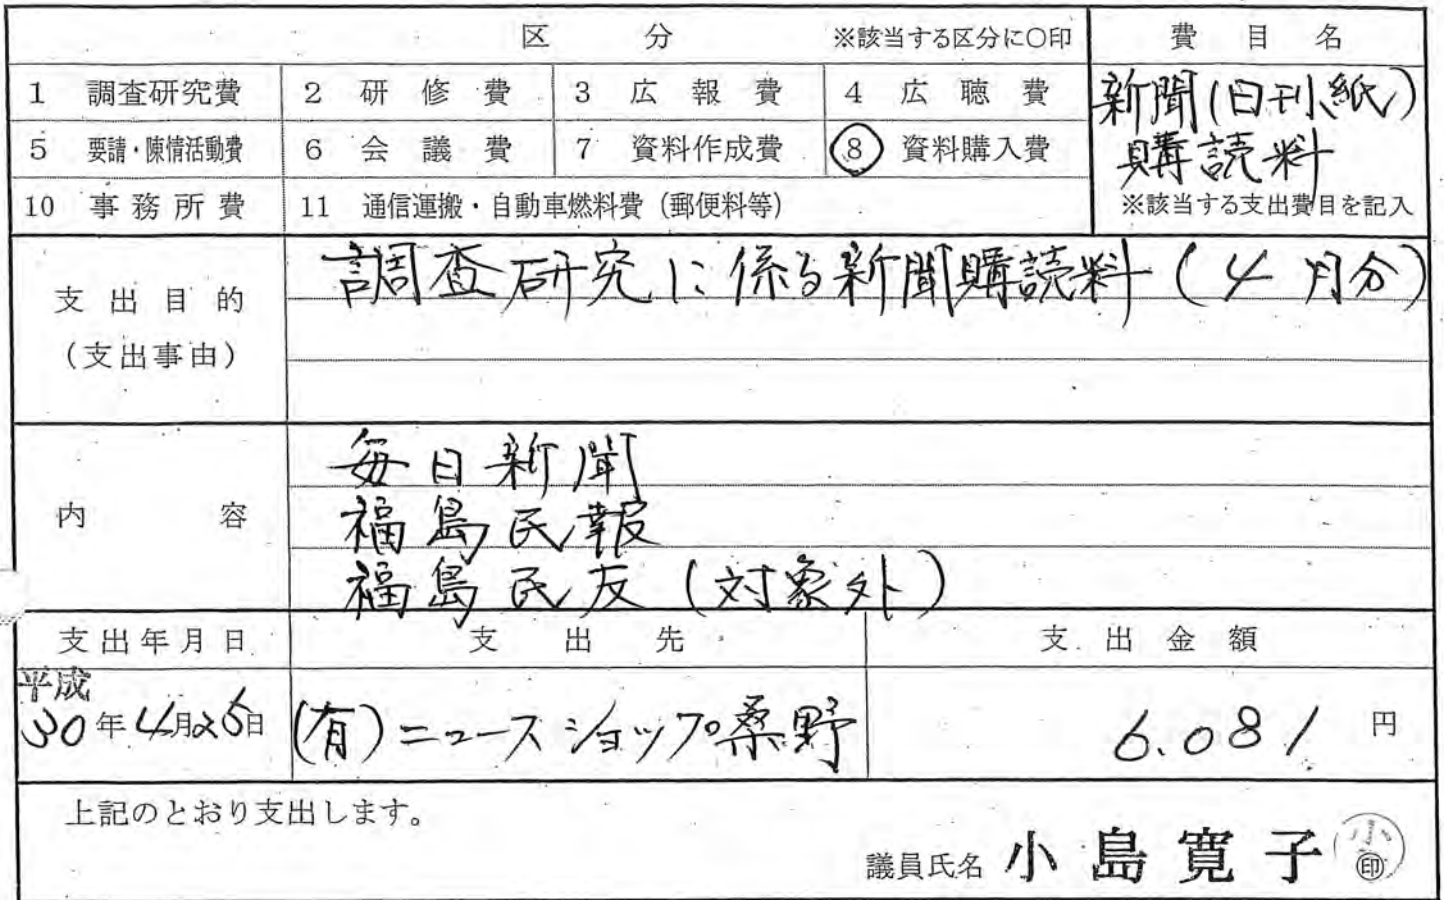 区 分 ※該当する区分に○印 費 目 名
1 調査研究費 2 研 修 費 3 広 報 費 4 広 聴 費
新聞(日刊紙)
5 要請・陳情活動費 6 会 議 費 7 資料作成費 8 資料購入費
購読料
10 事 務 所 費 11 通信運搬・自動車燃料費(郵便料等)
※該当する支出費目を記入
支 出 目 的
(支出事由)
調査研究に係る新聞購読料(4月分)
内 容
毎日新聞
福島民報
福島民友(対象外)
支出年月日 支 出 先 支 出 金 額
平成
30年4月25日 (有)ニュースショップ桑野 6.081 円
上記のとおり支出します。
議員氏名 小島寛子 印